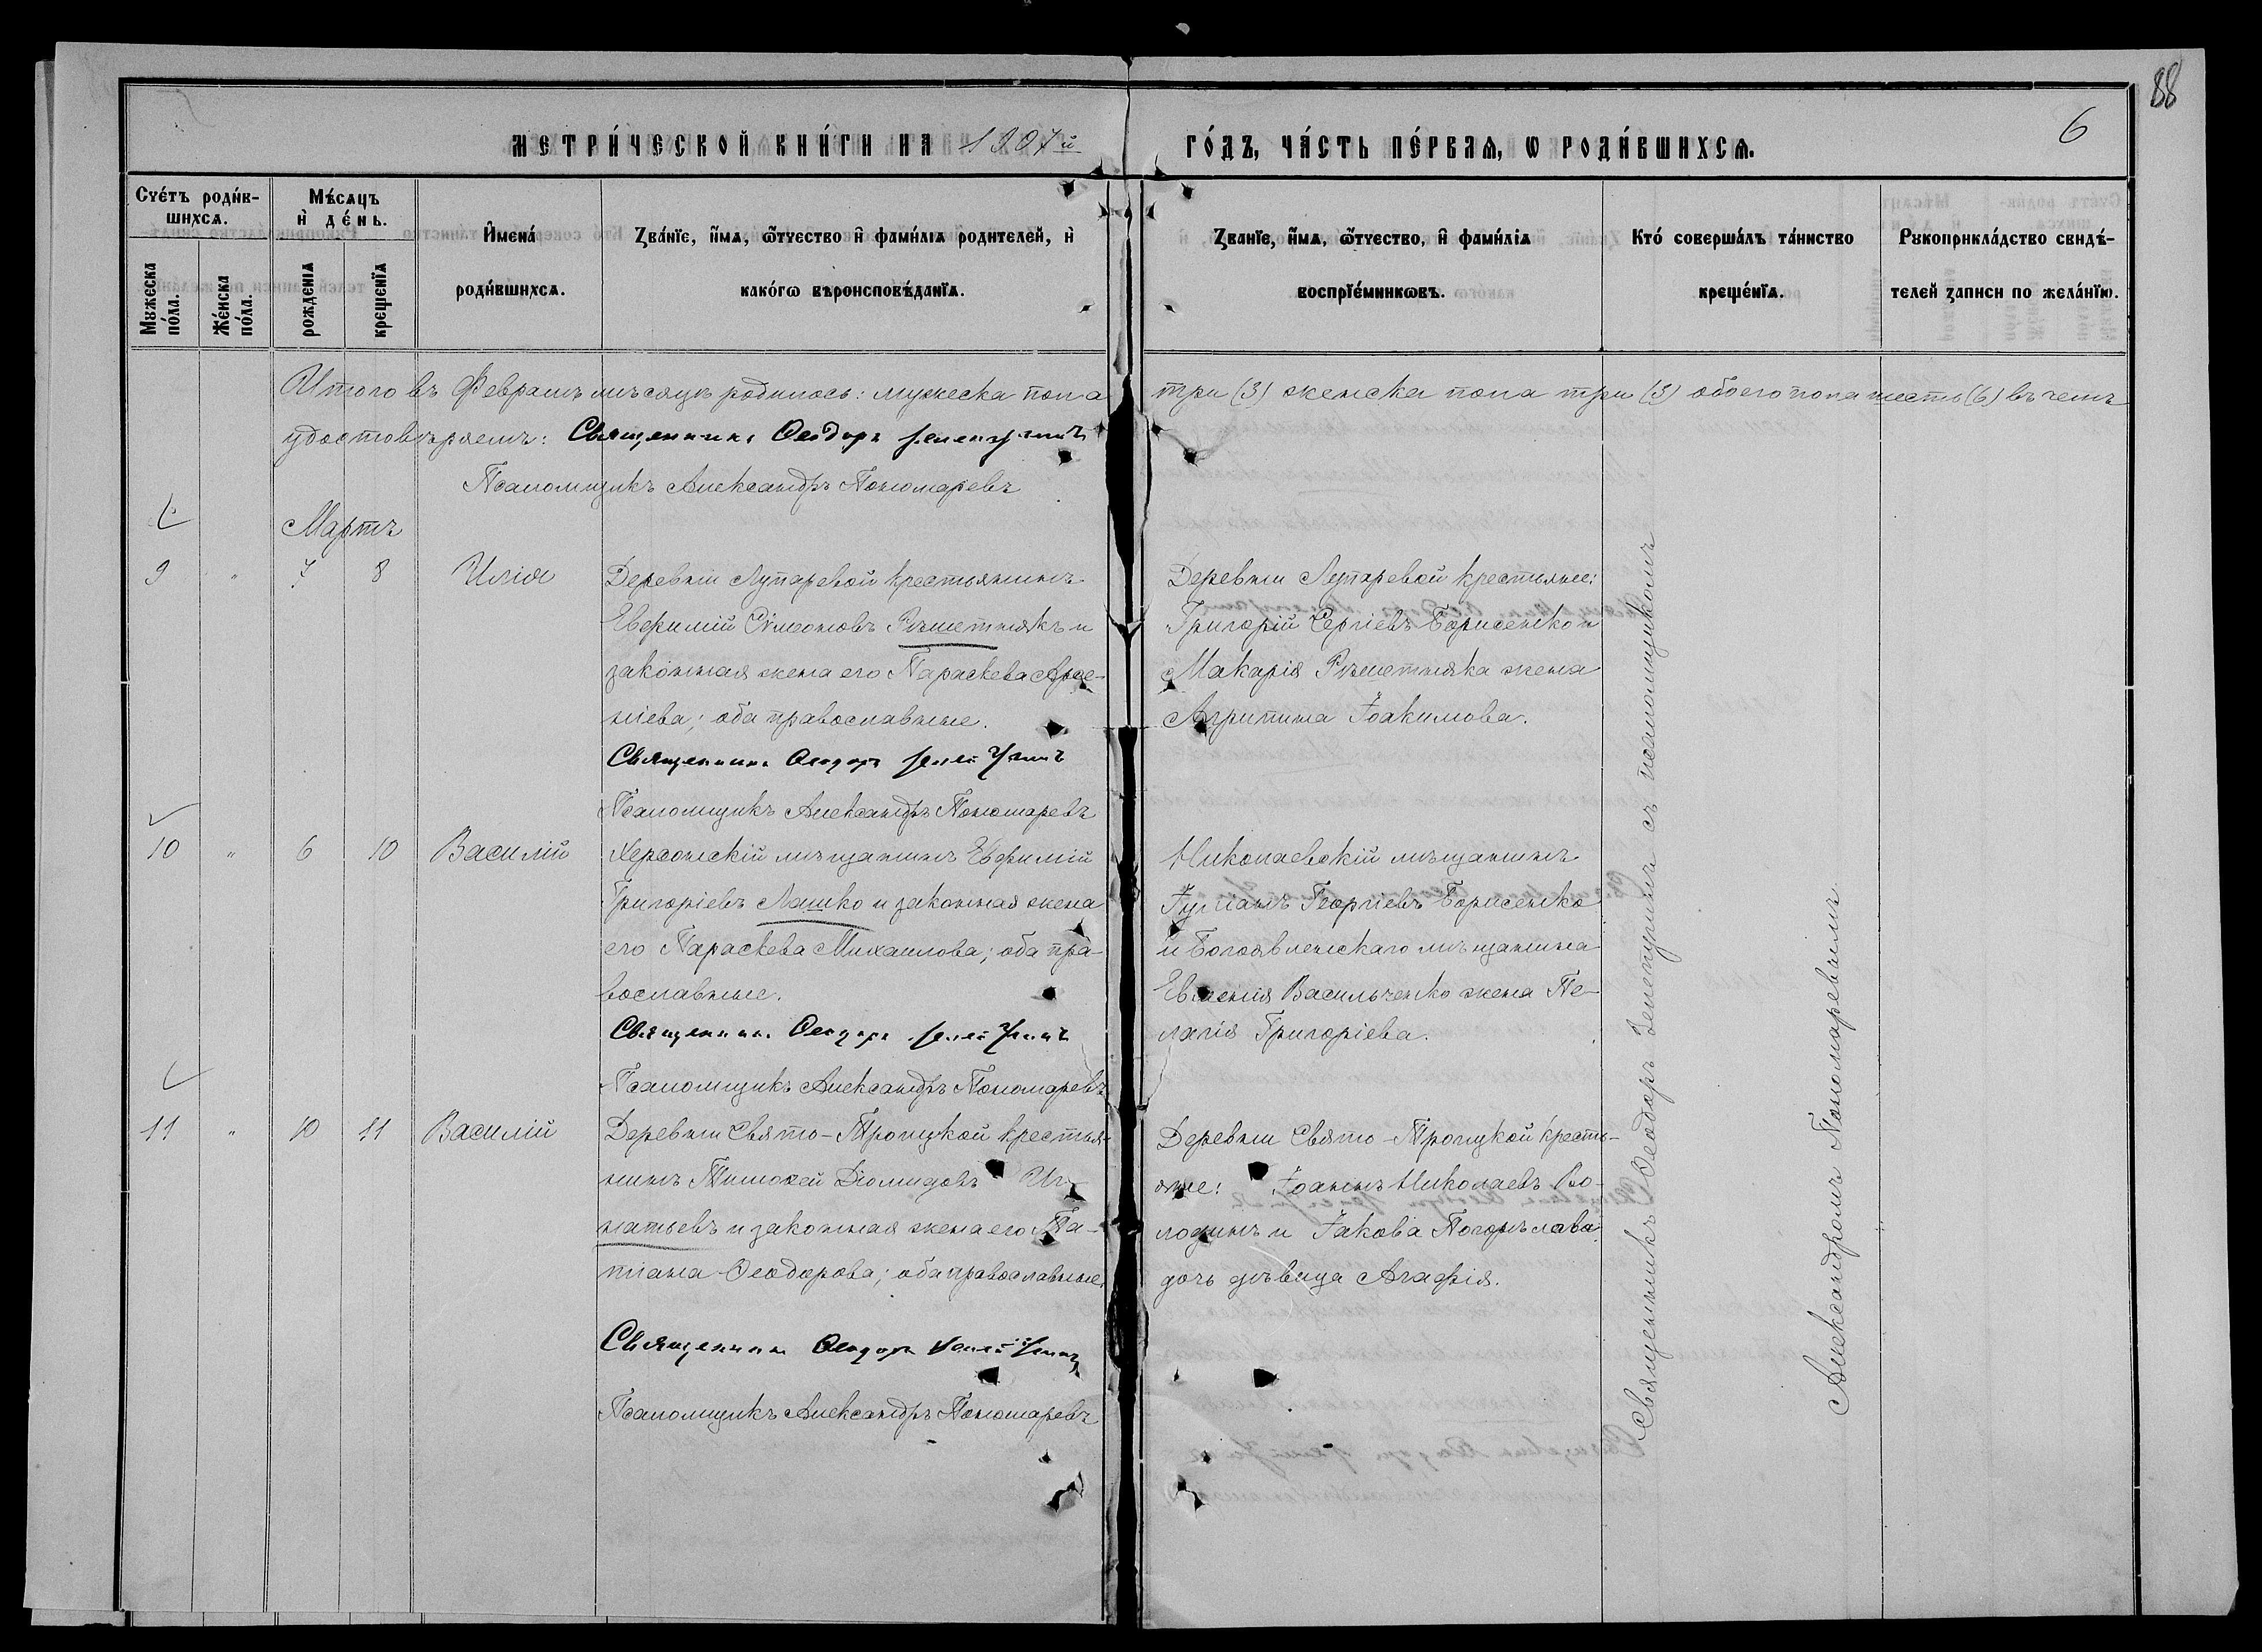 88
6
МЕТРИ́ЧЕСКОЙ КНИ́ГИ НА 1907й ГО́ДЪ, ЧА́СТЬ ПЕ́РВАѦ, Ѡ РОДИ́ВШИХСѦ.
Счéтъ роди́в-
шихсѧ.
Мужеска
по́ла.
Же́нска
по́ла.
Мѣ́сѧцъ
и҆ де́нь.
рожденїѧ
крещенїѧ
И҆мена́
роди́вшихсѧ.
Зва́нїе, и҆́мѧ, ѻ҆́тчество и҆ фами́лїѧ родителей, и҆
како́гѡ вѣроисповѣ́данїѧ.
Званїе, и҆́мѧ, ѻ҆́тчество, и҆ фами́лїѧ
воспрїе́мникѡвъ.
Кто́ соверша́лъ та́инство
креще́нїѧ.
Рукоприкла́дство свидѣ́-
телей записи по жела́нїю.
Итого въ Февралѣ мѣсяцѣ родилось: мужеска пола три (3) женска пола три (3) обоего пола шесть (6) въ чемъ
удостовѣряемъ: Священникъ Ѳеодоръ
Псаломщикъ Александръ Пономаревъ
Мартъ
9 " 7 8 Илія
Деревни Лупаревой крестьянинъ
Евфимій Сѵмеоновъ Рѣшетнякъ и
законная жена его Параскева Арсе-
ніева; оба православные.
Священникъ Ѳеодоръ
Псаломщикъ Александръ Пономаревъ
Деревни Лупаревой крестьяне:
Григорій Сергіевъ Борисенко и
Макарія Рѣшетняка жена
Агрипина Іоакимова.
10 " 6 10 Василій
Херсонскій мѣщанинъ Евфимій
Григоріевъ Лашко и законная жена
его Параскева Михаилова; оба пра-
вославные.
Священникъ Ѳеодоръ
Псаломщикъ Александръ Пономаревъ
Николаевскій мѣщанинъ
Іуліанъ Георгіевъ Борисенко
и Богоявленскаго мѣщанина
Евгенія Васильченко жена Пе-
лагія Григоріева.
11 " 10 11 Василій
Деревни Свято-Троицкой крестья-
нинъ Тимоѳей Діомидовъ Иг-
натьевъ и законная жена его Та-
тіана Ѳеодорова; оба православные.
Священникъ Ѳеодоръ
Псаломщикъ Александръ Пономаревъ
Деревни Свято-Троицкой кресть-
яне: Іоаннъ Николаевъ Во-
лодинъ и Іакова
дочь дѣвица Агафія.
Священникъ Ѳеодоръ съ псаломщикомъ
Александромъ Пономаревымъ.